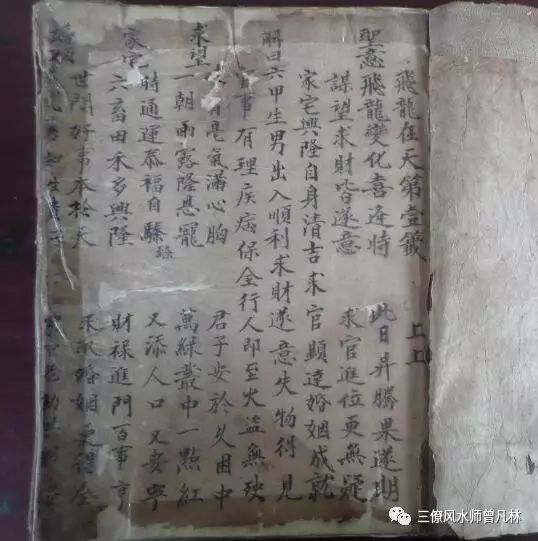 飛龍在天第壹籤 上上
聖意飛龍變化喜逢時 此日昇騰果遂期
謀望求財皆遂意 求官進位更無疑
家宅興隆自身清吉求官顯達婚姻成就
解曰六甲生男出入順利求財遂意失物得見
官事有理疾病保全行人即至火盜無殃
氣滿心胸 君子安於久困中
求望一朝雨露隆恩寵 萬綠叢中一點紅
時通運泰福自臻 又添人口又安寧
臻
家宅六畜田禾多興隆 財祿進門百事亨
世間好事本於天 婚姻更得全
三僚风水师曾凡林